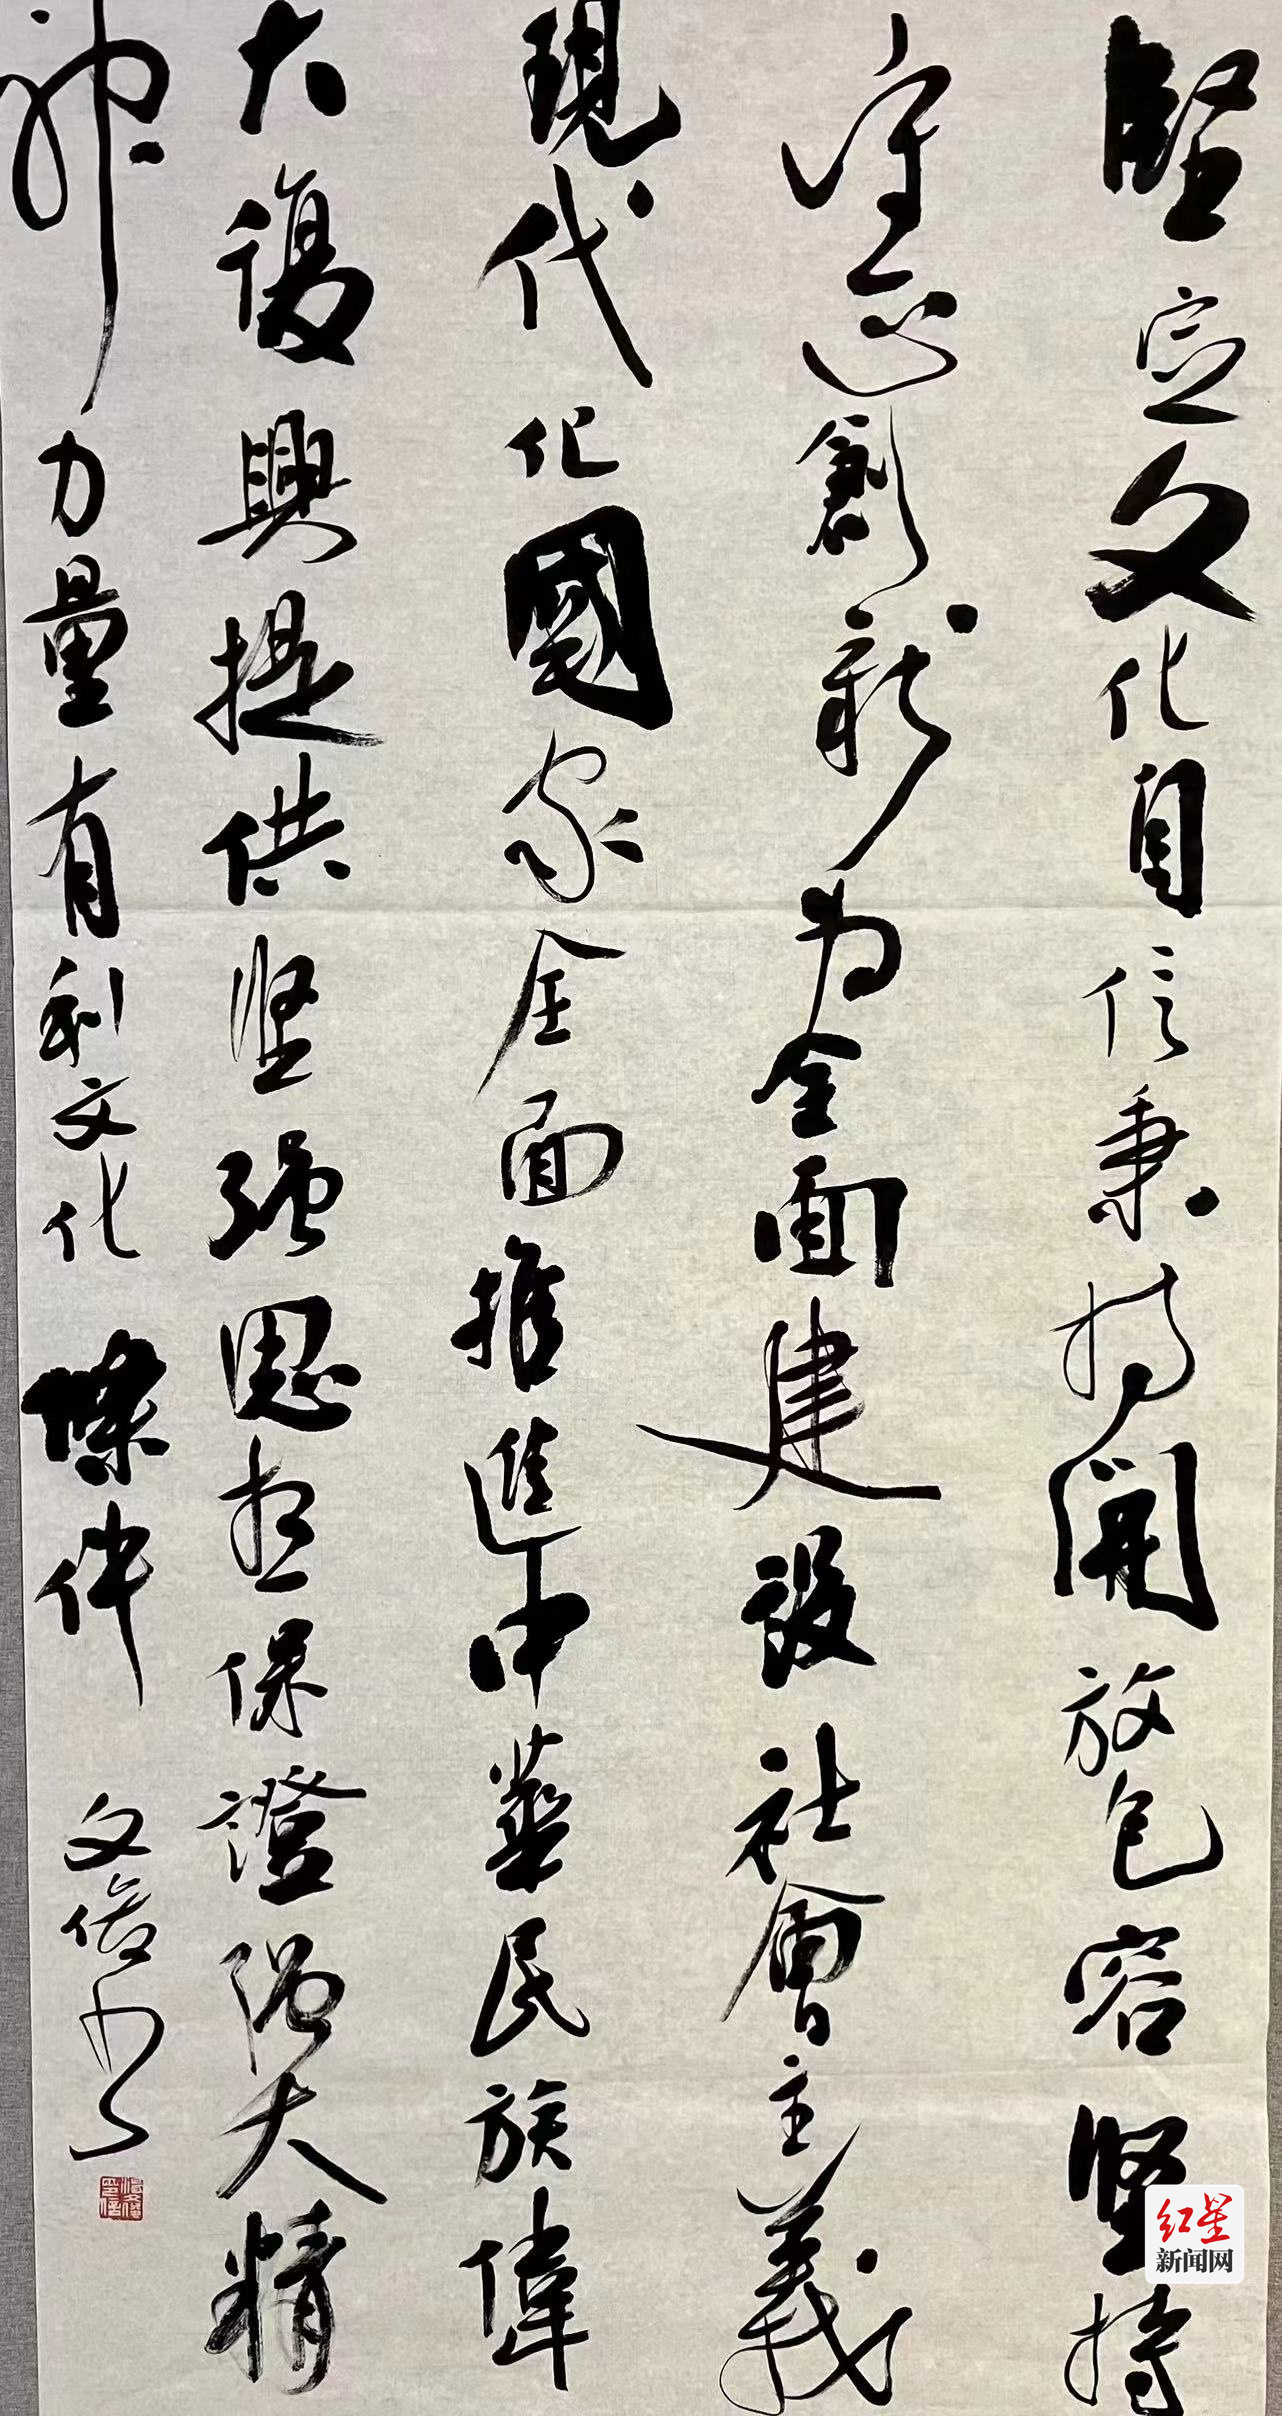 堅定文化自信秉持開放包容堅持
守正創新为全面建設社會主義
現代化國家全面推進中華民族偉
大復興提供坚强思想保證强大精
神力量有利文化條件 文
红星
新闻网